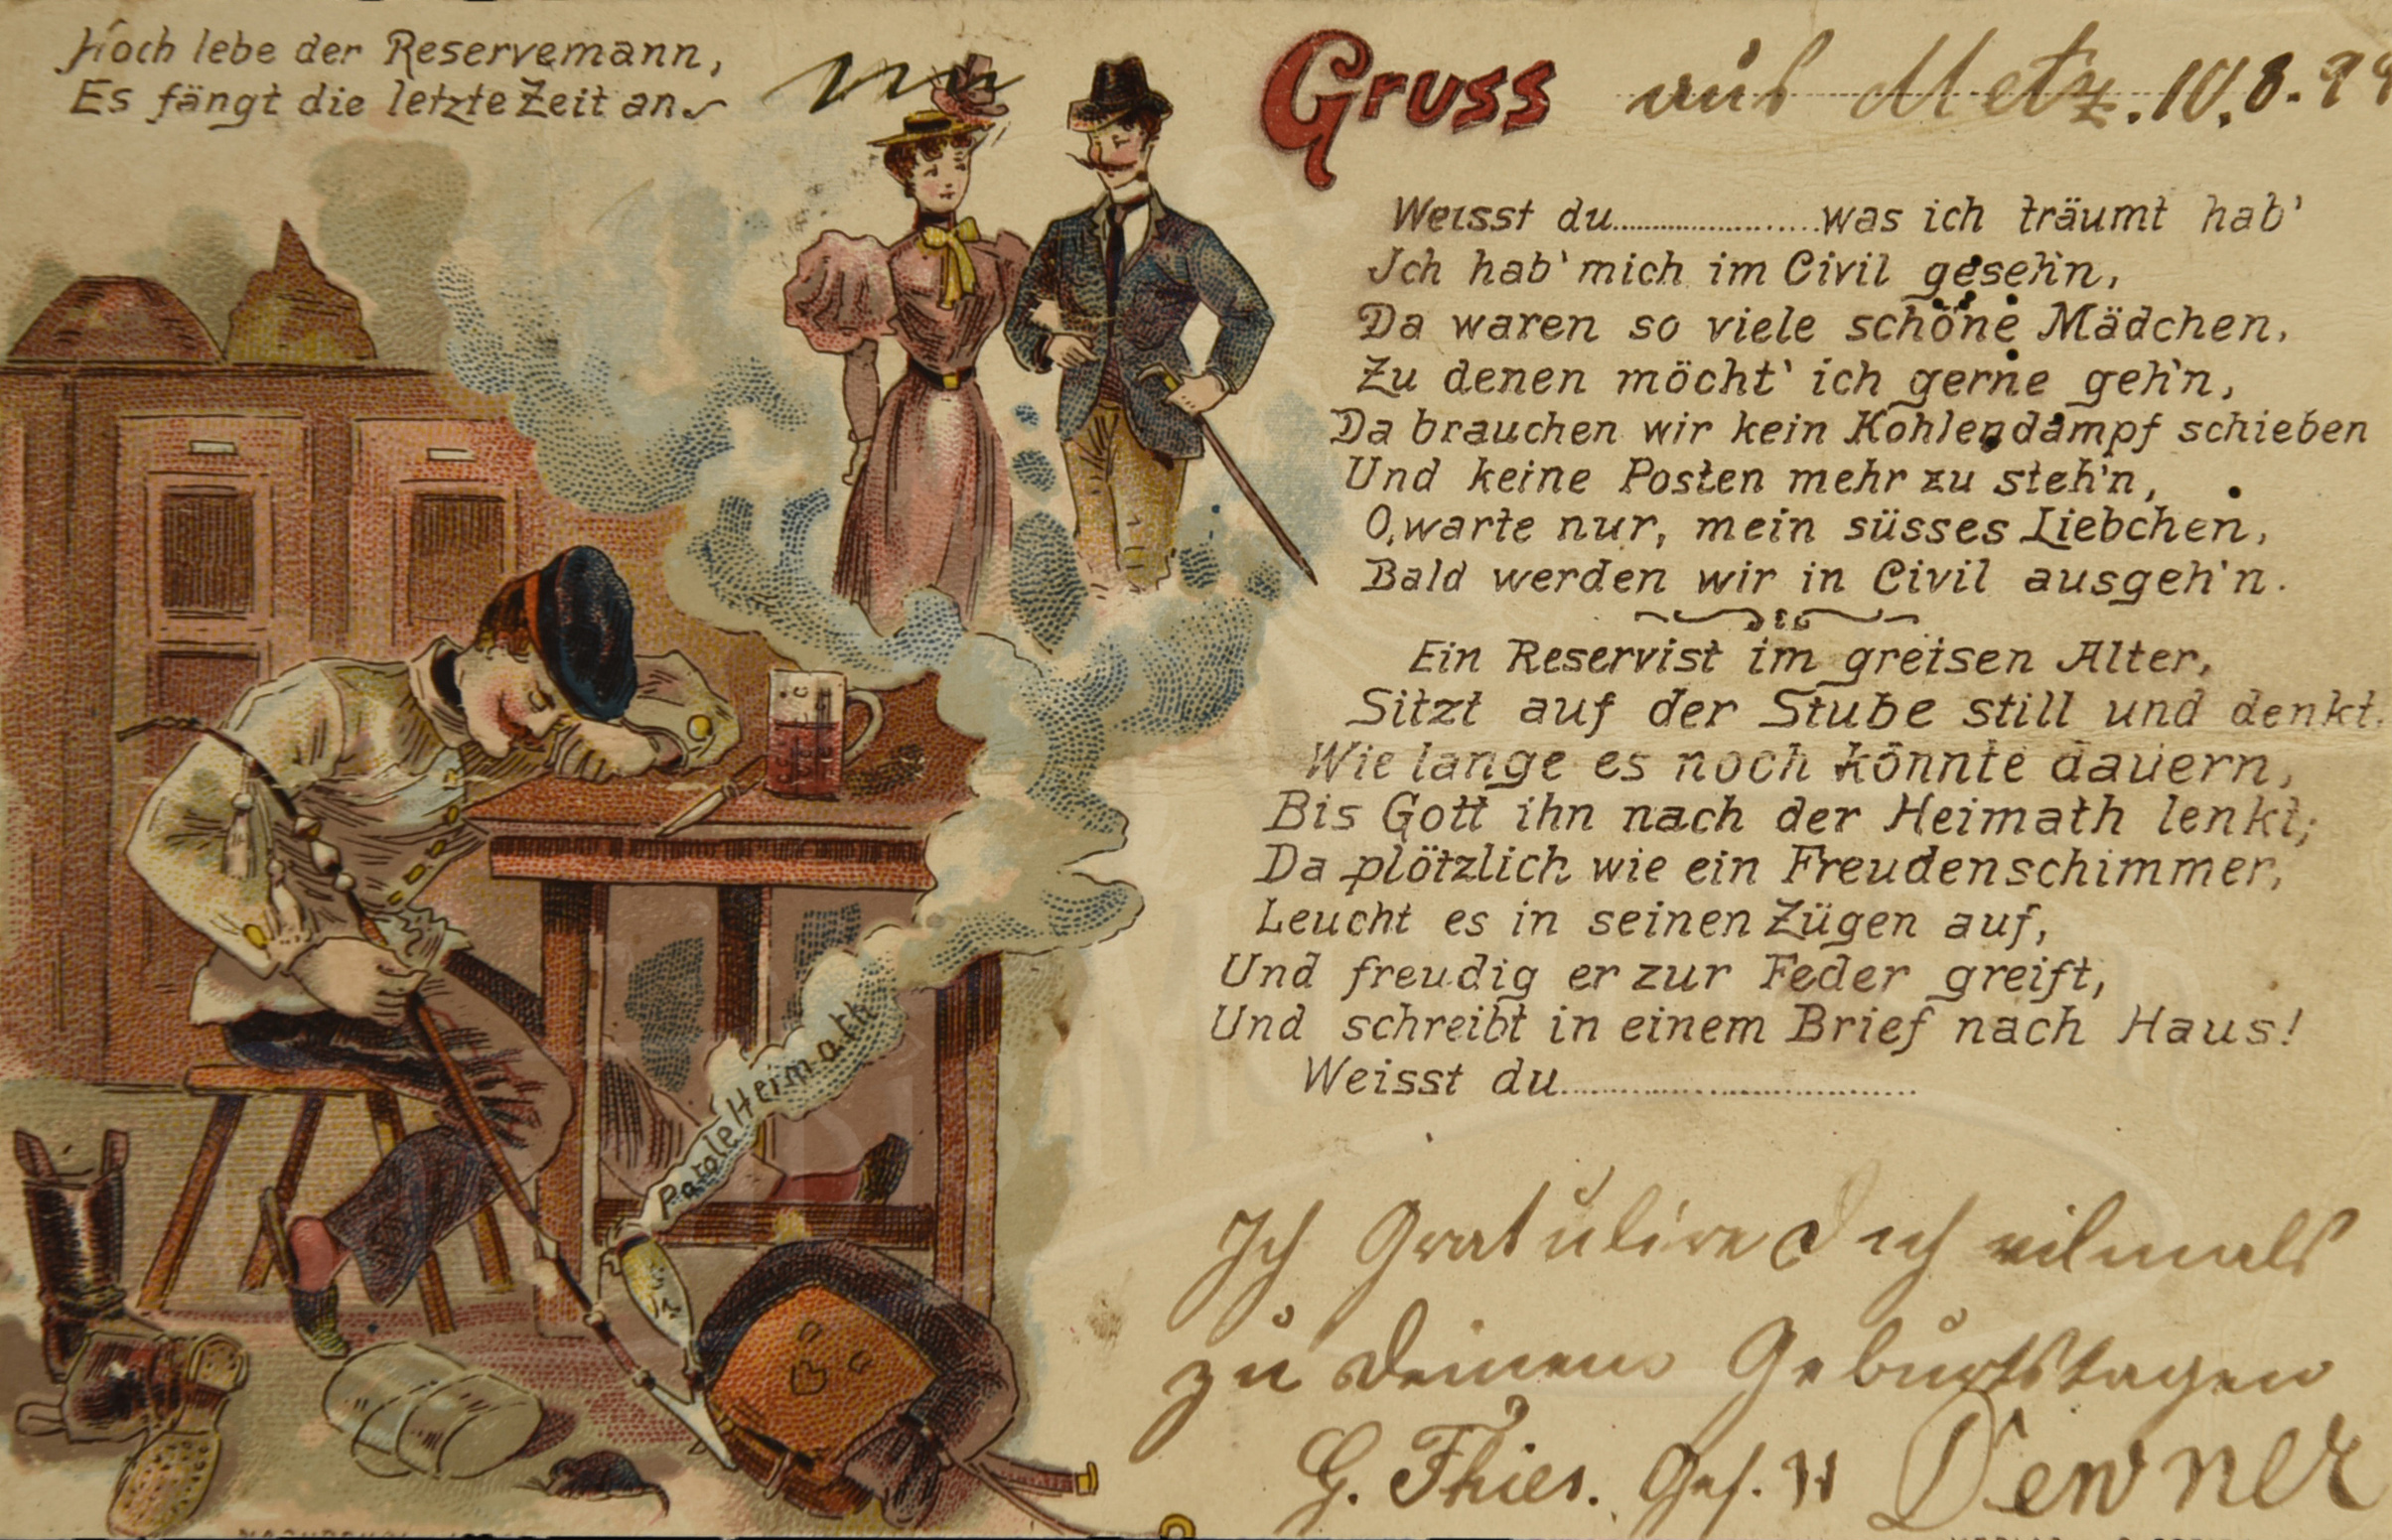 Hoch lebe der Reservemann,
Es fängt die letzte Zeit an.
Gruss aus Metz. 10.8.99
Weisst du....................was ich träumt hab'
Ich hab' mich im Civil geseh'n,
Da waren so viele schöne Mädchen,
Zu denen möcht' ich gerne geh'n,
Da brauchen wir kein Kohlendampf schieben
Und keine Posten mehr zu steh'n,
O, warte nur, mein süsses Liebchen,
Bald werden wir in Civil ausgeh'n.
Ein Reservist im greisen Alter,
Sitzt auf der Stube still und denkt.
Wie lange es noch könnte dauern,
Bis Gott ihn nach der Heimath lenkt;
Da plötzlich wie ein Freudenschimmer,
Leucht es in seinen Zügen auf,
Und freudig er zur Feder greift,
Und schreibt in einem Brief nach Haus!
Weisst du....................................
Parole Heimath
Ich Gratulire Dich vilmals
zu deinem Geburtstagen
G. Thies. Gef.